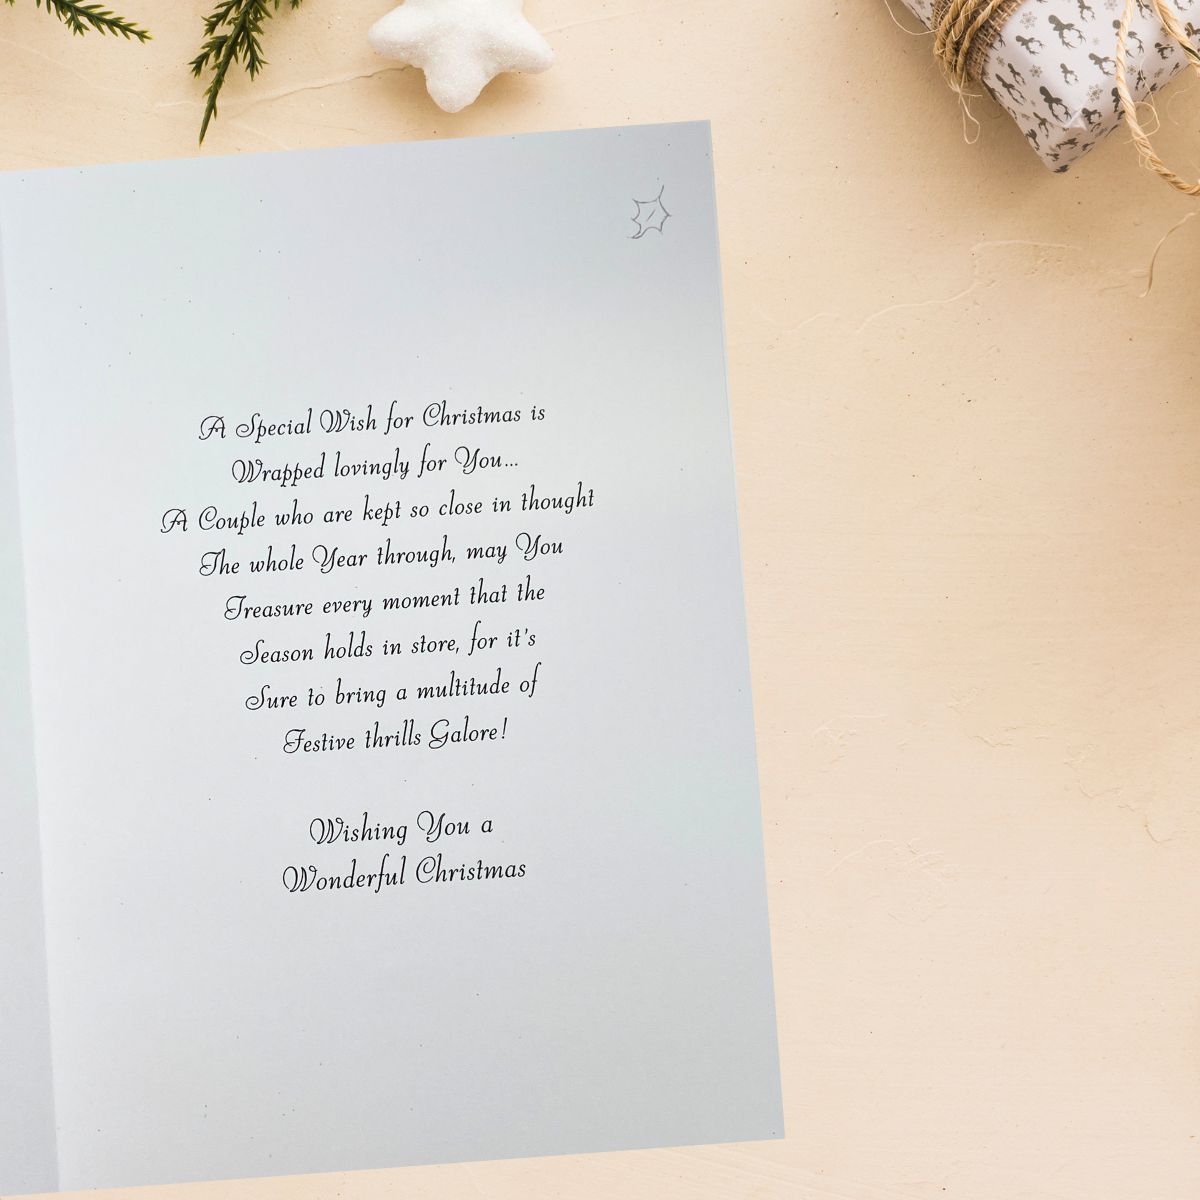 A Special Wish for Christmas is
Wrapped lovingly for You...
A Couple who are kept so close in thought
The whole Year through, may You
Treasure every moment that the
Season holds in store, for it's
Sure to bring a multitude of
Festive thrills Galore!
Wishing You a
Wonderful Christmas